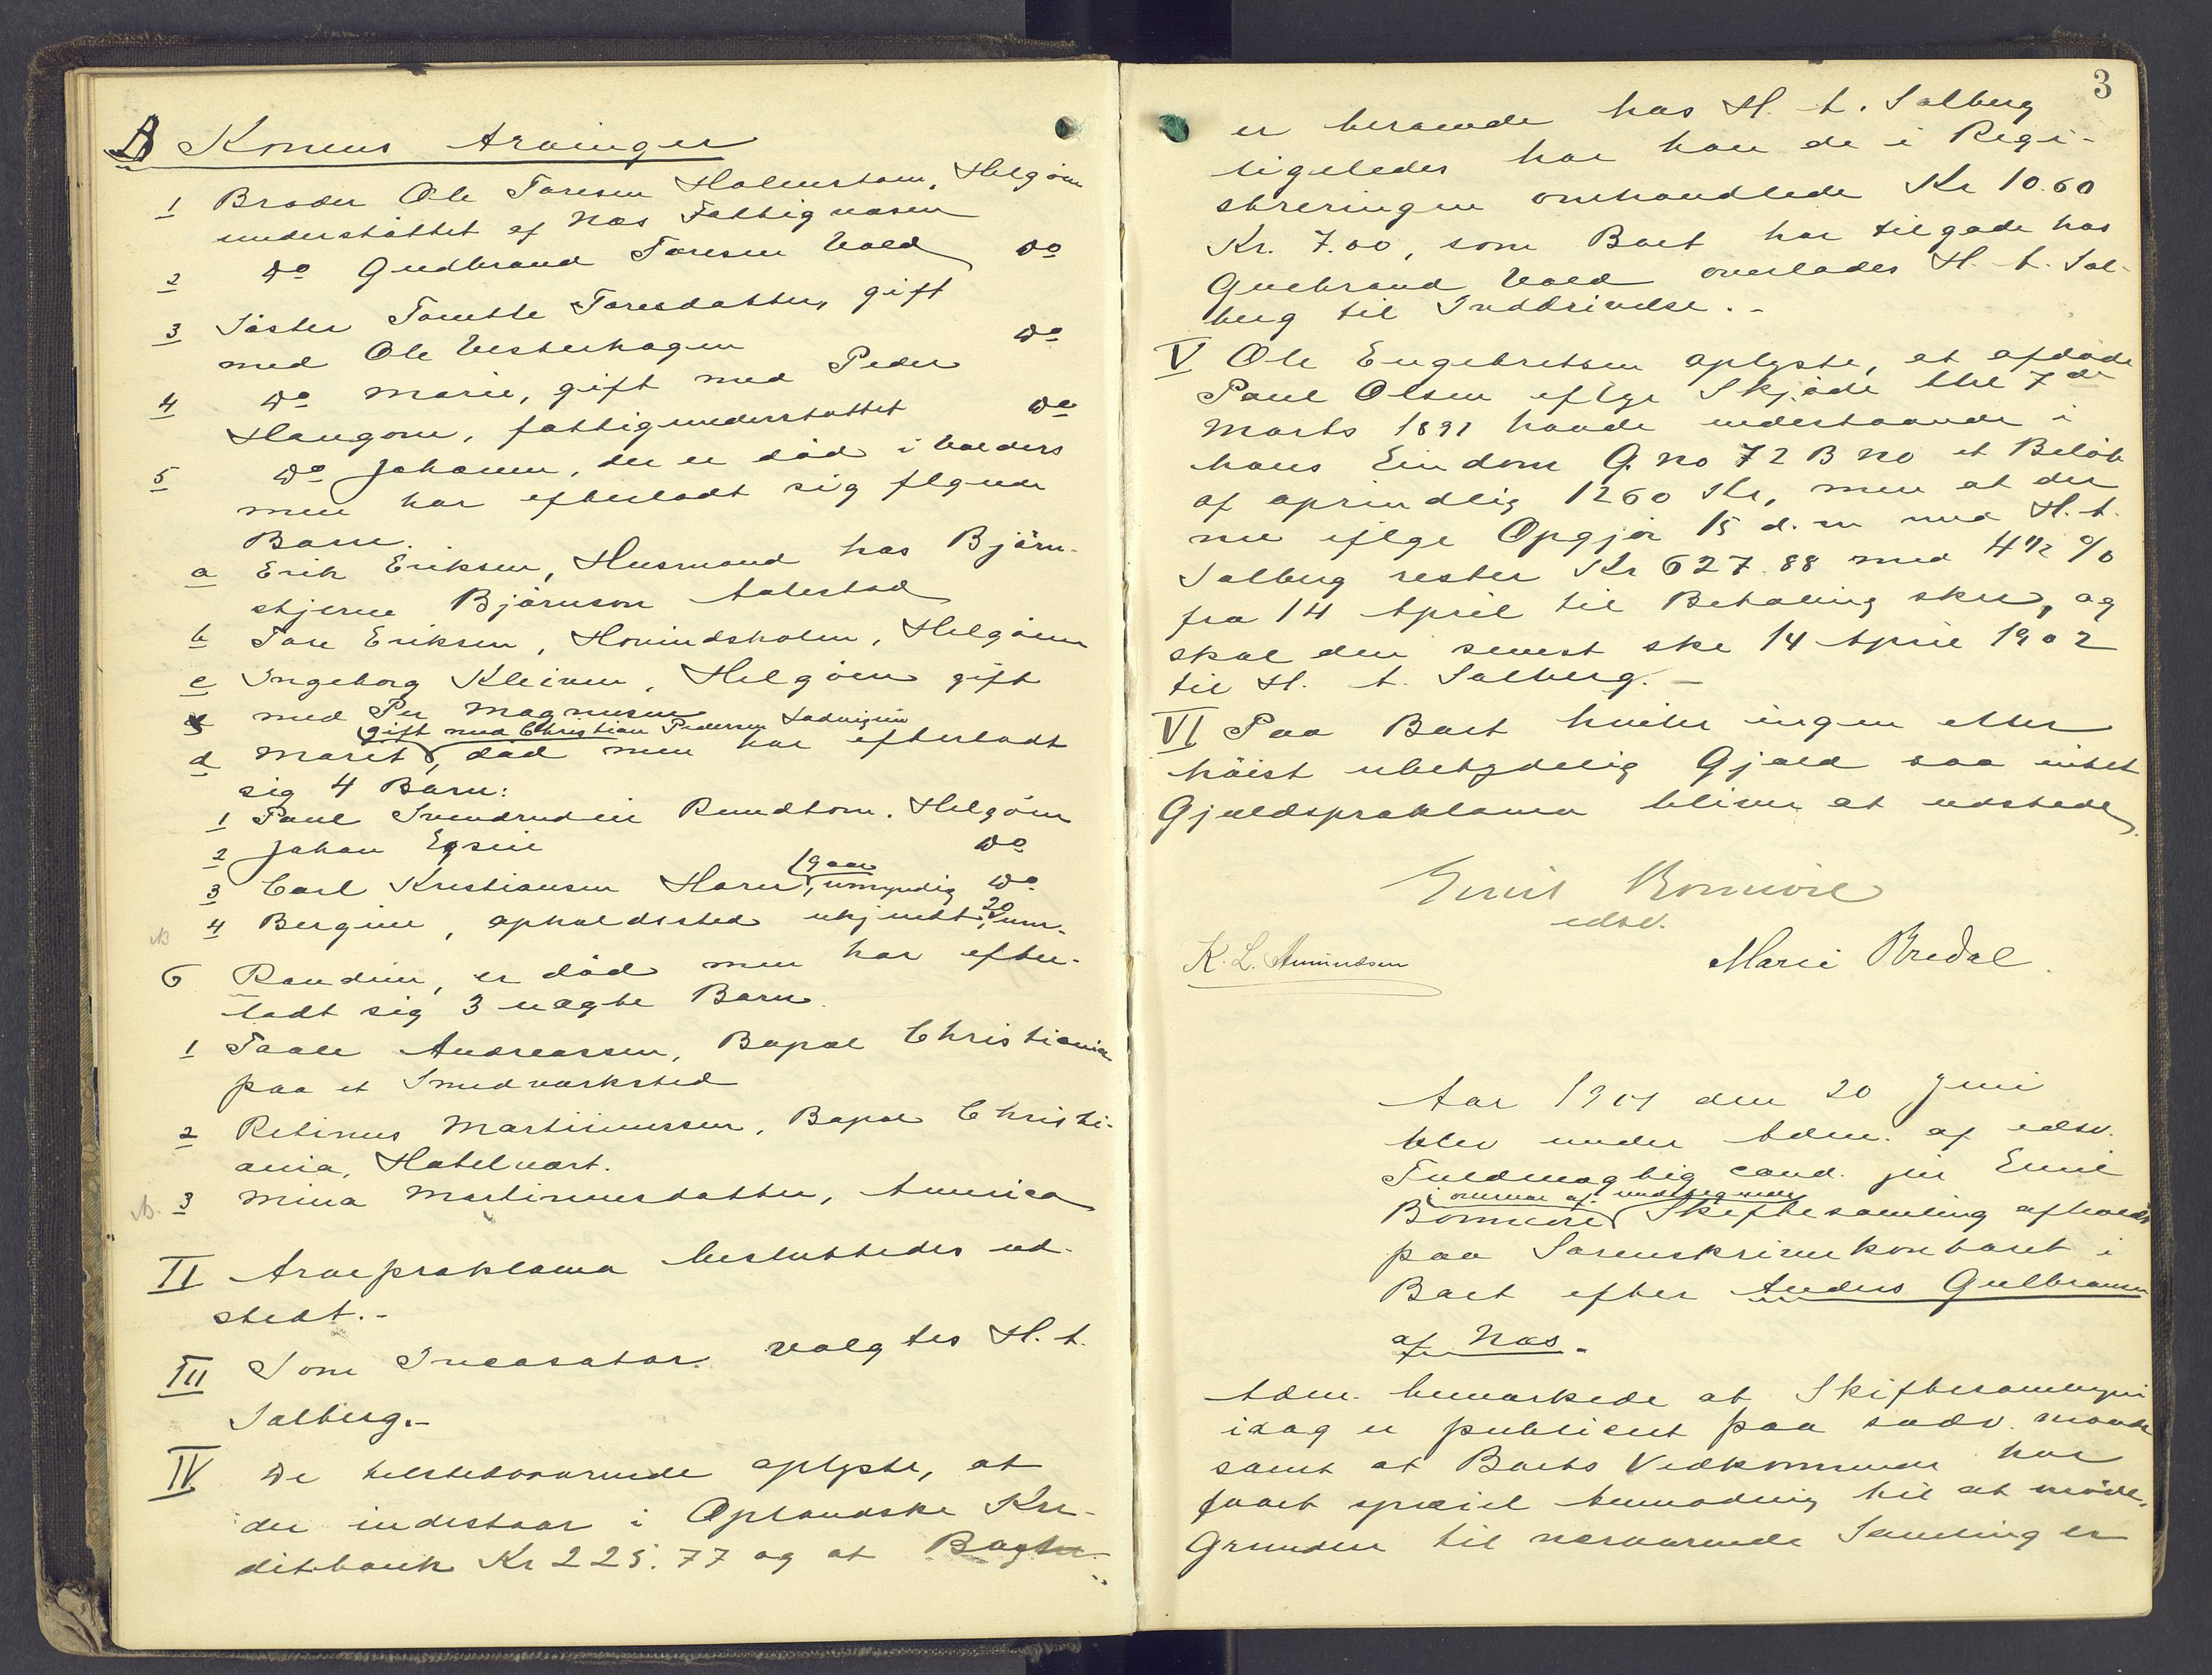 B Konens Arvinger
1 Broder Ole Toresen Holmstøen, Helgøen
understöttet af Næs Fattigvæsen
2 Do Gudbrand Toresen Vold Do
3 Söster Tomette Toresdatter, gift
med Ole Vesterhagen Do
4 Do Marie, gift med Peder
Haugom, fattigunderstöttet Do
5 Do Johanne, der er död i Valders
men har efterladt sig flgende
Barn.
a Erik Eriksen, Husmand hos Björn-
stjerne Björnson Aulestad
b Tore Eriksen, Hovindsholm, Helgöen
c Ingeborg Kleiven, Helgöen gift
med Per Magnusen
gift med Christian Pedersen Ladvigeie
d Marit, död men har efterladt
sig 4 Barn:
1 Paul Svendrudeie Rundtom. Helgöen
2 Johan Egseie Do
19 aar
3 Carl Kristiansen Horne, umyndig Do
4 Bergine, opholdssted ukjendt, 20 um.
6 Randine, er död men har efter-
ladt sig 3 uægte Barn.
1 Taale Andreassen, Bopæl Christiania
paa et Smedværksted
2 Retinus Martinussen, Bopæl Christi-
ania, Hotelvært.
3 Mina Martinusdatter, America
II Arveproklama besluttedes ud-
stedt.-
III Som Incasator valgtes H. A.
Salberg.-
IV De tilstedeværende oplyste, at
der indestaar i Oplandske Kre-
ditbank Kr 225.77 og at Bogen
3
er beroende hos H. A. Salberg
ligeledes har han de i Regi-
streringen omhandlede Kr 10.60
Kr. 7.00, som Boet har tilgode hos
Guebrand Vold overlades H. A. Sal-
berg til Inddrivelse.-
V Ole Engebretsen oplyste, at afdöde
Paul Olsen iflge Skjöde thl 7de
Marts 1891 havde indestaaende i
hans Eiendom G. No 72 B No et Belöb
af oprindlig 1260 Kr, men at der
nu iflge Opgjör 15 d. m med H. A.
Salberg rester Kr 627.88 med 4 1/2 %
fra 14 April til Betaling sker, og
skal den senest ske 14 April 1902
til H. A. Salberg.-
VI Paa Boet hviler ingen eller
höist ubetydelig Gjæld saa intet
Gjældsproklama bliver at udstede.
Emil Bonnevie
edsv.
K. L. Amundsen Marie Bredal.
Aar 1901 den 20 Juni
blev under Adm. af edsv.
Fuldmægtig cand. jur Emil
i overvær af undertegnede
Bonnevie Skiftesamling afholdt
paa Sorenskriverkontoret i
Boet efter Anders Gulbransen
af Næs.
Adm. bemærkede at Skiftesamlingen
idag er publiceret paa sædv. Maade
samt at Boets Vedkommende har
faaet speciel Anmodning til at möde,
Grunden til nærværende Samling er